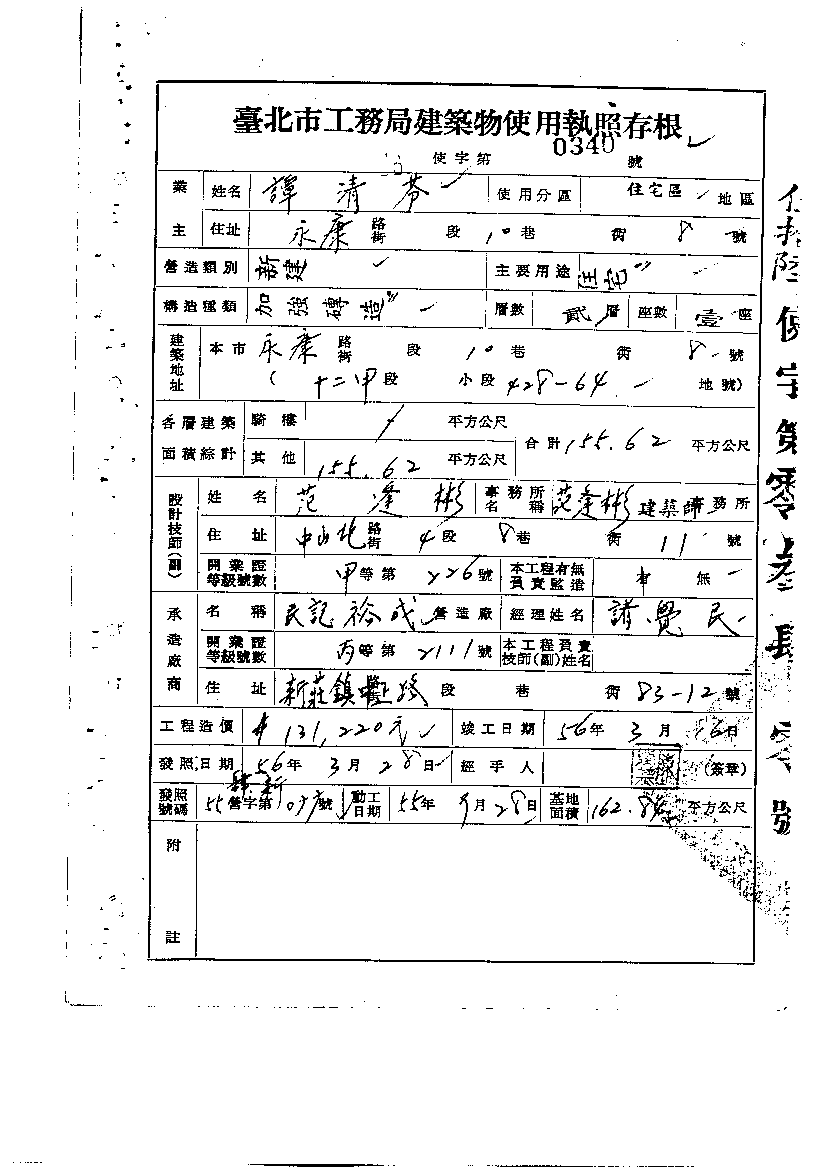 臺北市工務局建築物使用執照存根
使字第 0340 號
業主 姓名 譚清芬 使用分區 住宅區 地區
住址 永康 路街 段 10巷 衖 8 號
營造類別 新建 主要用途 住宅
構造種類 加強磚造 層數 貳層 座數 壹座
建築地址 本市 永康 路街 段 10巷 衖 8 號
( 十二甲段 小段 428-64 地號)
各層建築面積綜計 騎樓 平方公尺 合計 155.62 平方公尺
其他 155.62 平方公尺
設計技師(副) 姓名 范逢彬 事務所名稱 范逢彬建築師事務所
住址 中山北路街 4段 8巷 衖 11 號
開業證等級號數 甲等第 226號 本工程有無負責監造 有 無
承造廠商 名稱 民記裕成營造廠 經理姓名 諸覺民
開業證等級號數 丙等第 2111號 本工程負責技師(副)姓名
住址 新莊鎮 路 段 巷 衖 83-12號
工程造價 131,220元 竣工日期 56年 3月 16日
發照日期 56年 3月 28日 經手人 (簽章)
發照號碼 55營字第 號 動工日期 55年 9月28日 基地面積 162.84 平方公尺
附註
伍拾陸使字第零叁肆零號